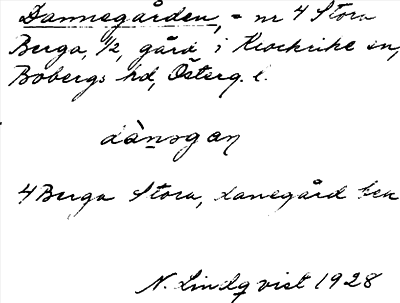 Dannegården, = nr 4 Stora
Berga, 1/2, gård i Klockrike sn,
Bobergs hd, Österg. l.
dànsgan
4 Berga Stora, Danegård bek
N. Lindqvist 1928